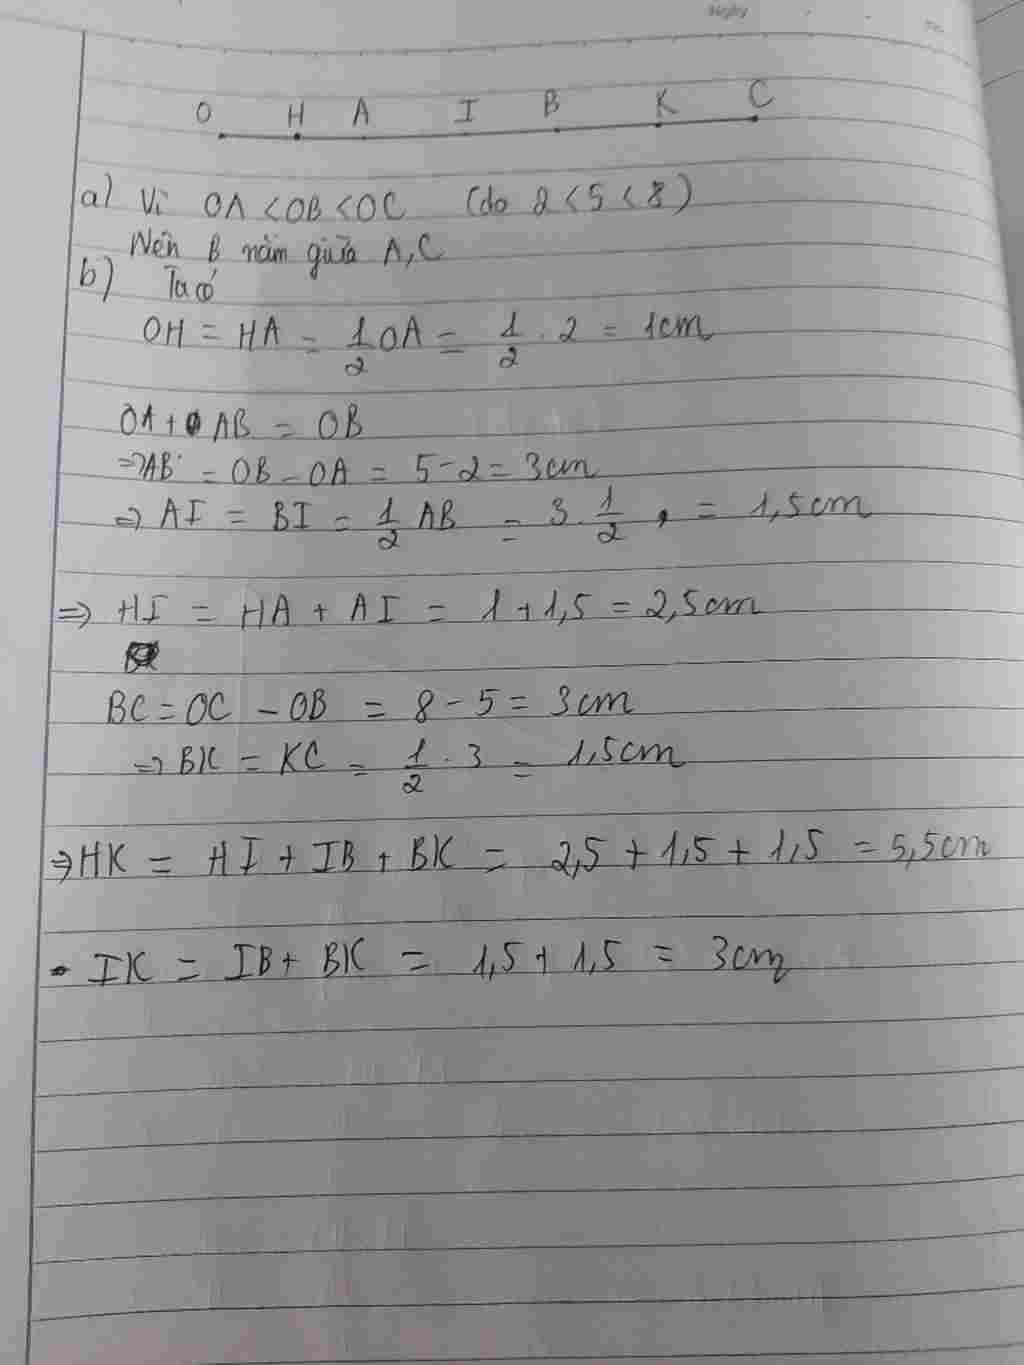 Ngày
O H A I B K C
a) Vì OA < OB < OC (do 2 < 5 < 8)
Nên B nằm giữa A, C
b) Ta có
OH = HA = 1/2 OA = 1/2 . 2 = 1cm
OA + AB = OB
=> AB = OB - OA = 5 - 2 = 3cm
=> AI = BI = 1/2 AB = 3 . 1/2 = 1,5cm
=> HI = HA + AI = 1 + 1,5 = 2,5cm
BC = OC - OB = 8 - 5 = 3cm
=> BK = KC = 1/2 . 3 = 1,5cm
=> HK = HI + IB + BK = 2,5 + 1,5 + 1,5 = 5,5cm
- IK = IB + BK = 1,5 + 1,5 = 3cm